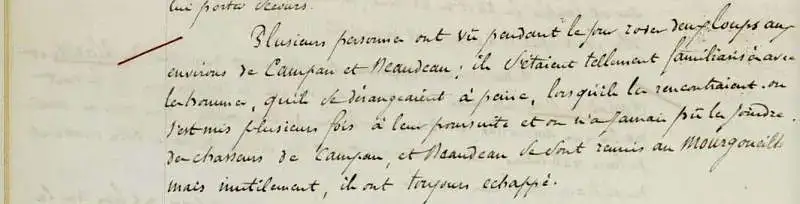 lui porter secours.
Plusieurs personnes ont vû pendant le jour roser deux loups aux
environs de Campan et Beaudean; ils s'étaient tellement familiarisés avec
les hommes, qu'ils se dérangeaient à peine, lorsqu'ils les rencontraient. on
s'est mis plusieurs fois à leur poursuite et on n'a jamais pû les joindre.
des chasseurs de Campan, et Beaudean se sont reunis au Mourgoueilh
mais inutilement, ils ont toujours echappé.